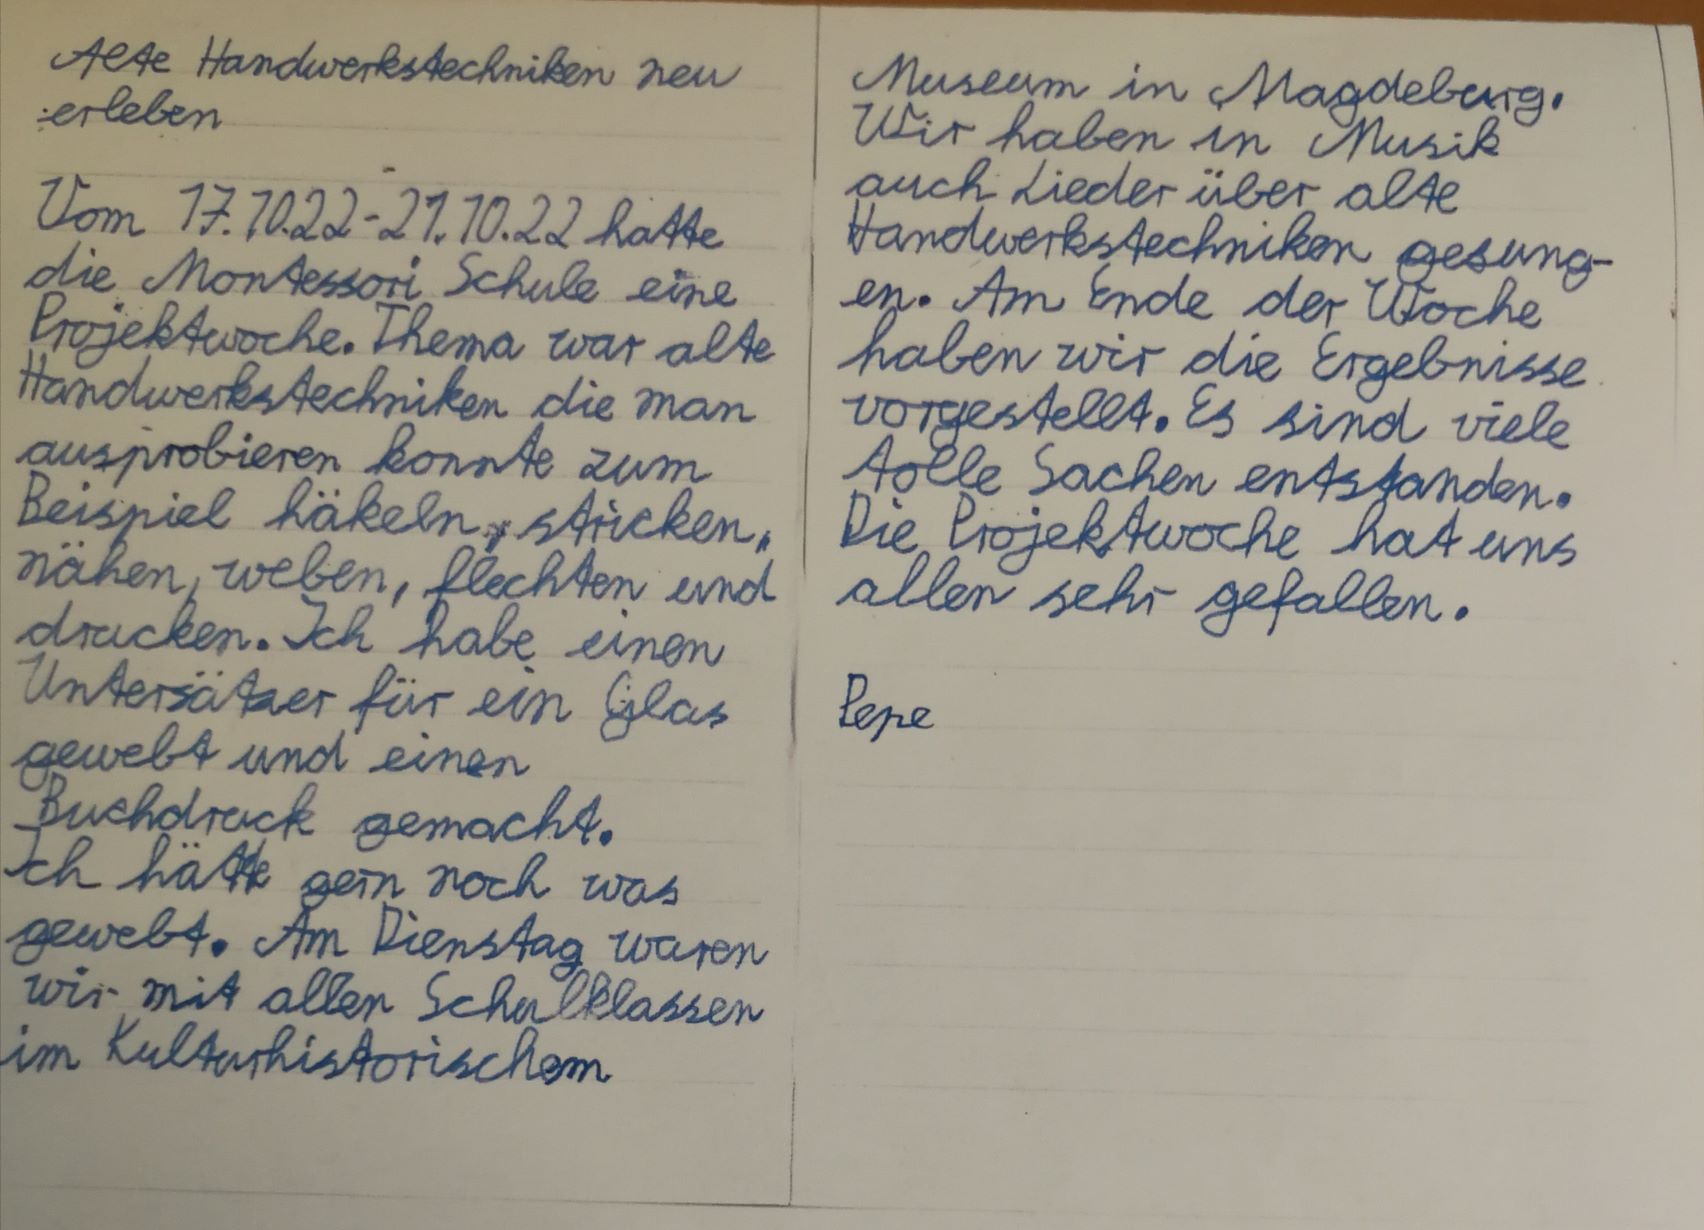 Alte Handwerkstechniken neu
erleben
Vom 17.10.22-21.10.22 hatte
die Montessori Schule eine
Projektwoche. Thema war alte
Handwerkstechniken die man
ausprobieren konnte zum
Beispiel häkeln, stricken,
nähen, weben, flechten und
drucken. Ich habe einen
Untersätzer für ein Glas
gewebt und einen
Buchdruck gemacht.
Ich hätte gern noch was
gewebt. Am Dienstag waren
wir mit allen Schulklassen
im Kulturhistorischem
Museum in Magdeburg.
Wir haben in Musik
auch Lieder über alte
Handwerkstechniken gesung-
en. Am Ende der Woche
haben wir die Ergebnisse
vorgestellt. Es sind viele
tolle Sachen entstanden.
Die Projektwoche hat uns
allen sehr gefallen.
Pepe